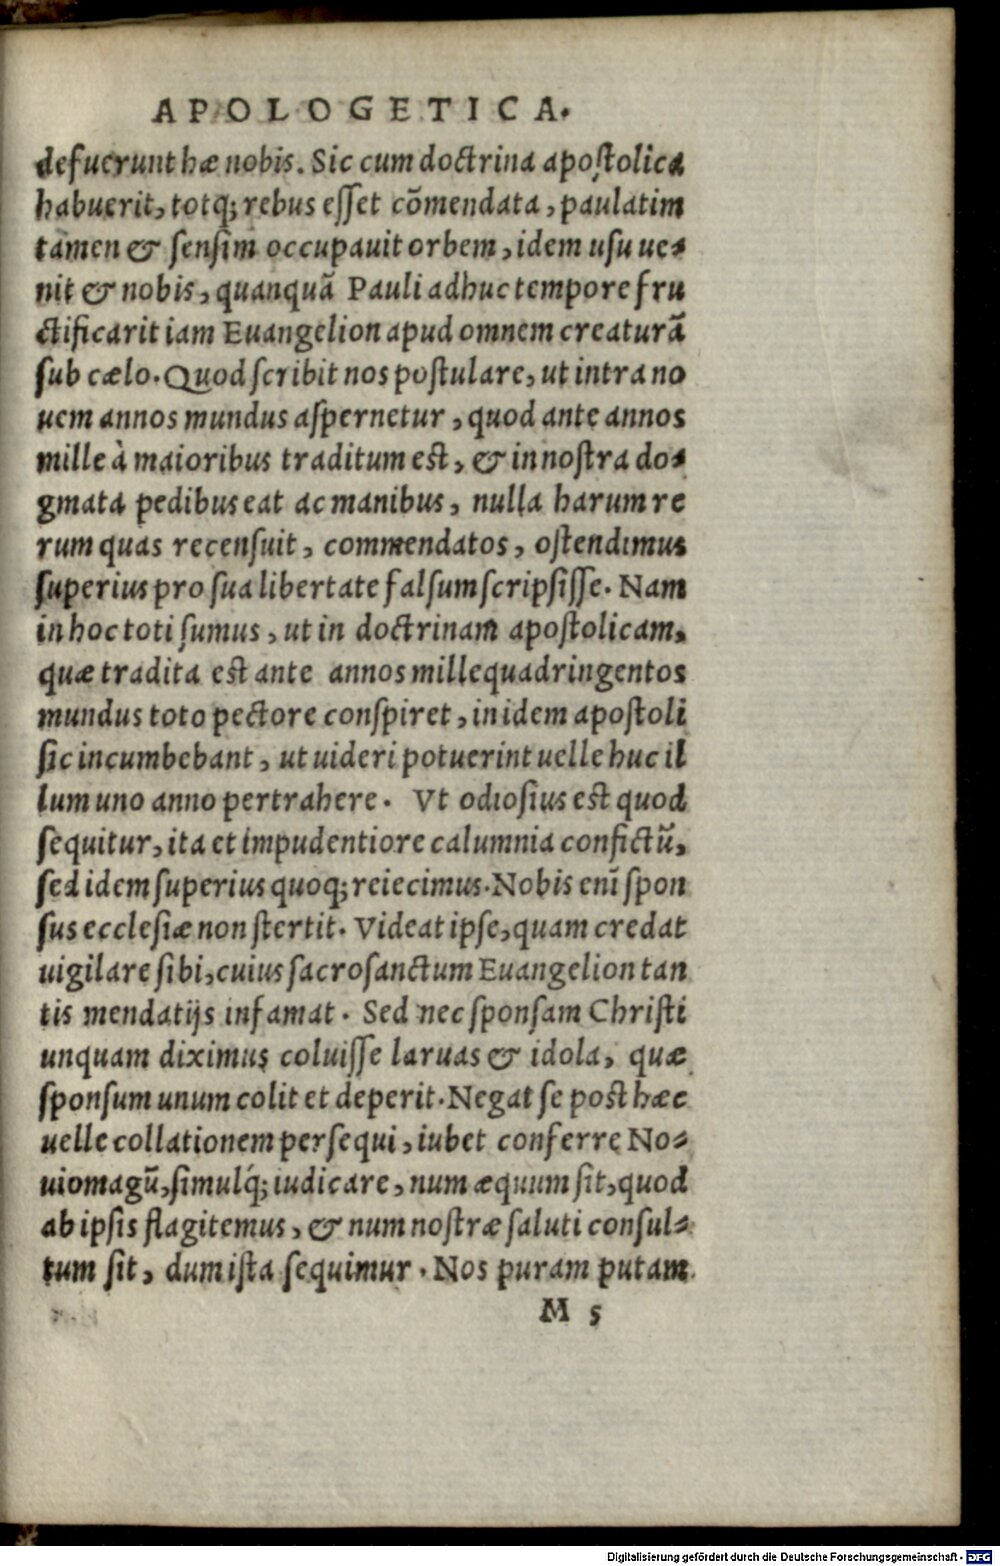 APOLOGETICA.
defuerunt hæ nobis. Sic cum doctrina apostolica
habuerit, totq; rebus esset cõmendata, paulatim
tamen & sensim occupauit orbem, idem usu ue-
nit & nobis, quanquã Pauli adhuc tempore fru
ctificarit iam Euangelion apud omnem creaturã
sub cælo. Quod scribit nos postulare, ut intra no
uem annos mundus aspernetur, quod ante annos
mille à maioribus traditum est, & in nostra do-
gmata pedibus eat ac manibus, nulla harum re
rum quas recensuit, commendatos, ostendimus
superius pro sua libertate falsum scripsisse. Nam
in hoc toti sumus, ut in doctrinam apostolicam,
quæ tradita est ante annos mille quadringentos
mundus toto pectore conspiret, in idem apostoli
sic incumbebant, ut uideri potuerint uelle huc il
lum uno anno pertrahere. Vt odiosius est quod
sequitur, ita et impudentiore calumnia confictũ,
sed idem superius quoq; reiecimus. Nobis enĩ spon
sus ecclesiæ non stertit. Videat ipse, quam credat
uigilare sibi, cuius sacrosanctum Euangelion tan
tis mendatijs infamat. Sed nec sponsam Christi
unquam diximus coluisse laruas & idola, quæ
sponsum unum colit et deperit. Negat se post hæc
uelle collationem persequi, iubet conferre No-
uiomagũ, simulq́; iudicare, num æquum sit, quod
ab ipsis flagitemus, & num nostræ saluti consul-
tum sit, dum ista sequimur. Nos puram putam
M 5
Digitalisierung gefördert durch die Deutsche Forschungsgemeinschaft - DFG